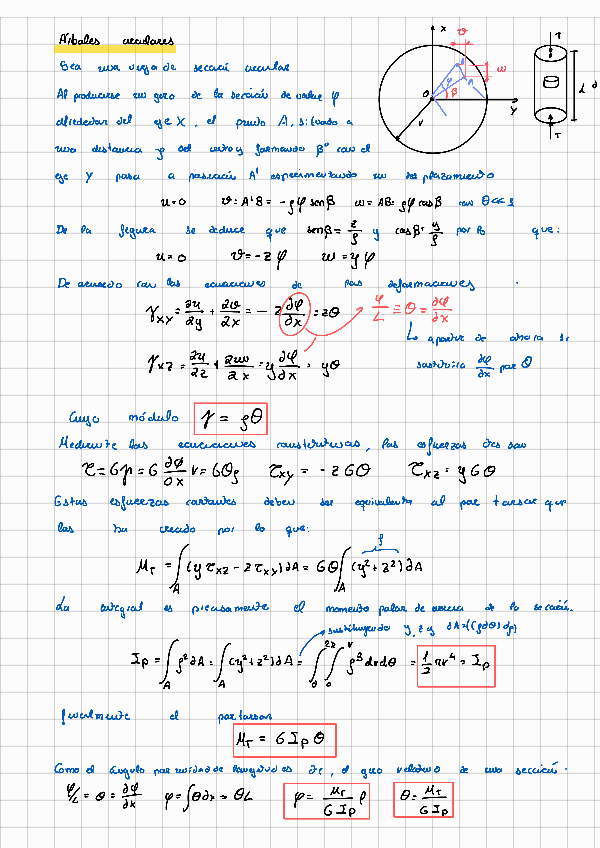 Árboles circulares
Sea una viga de sección circular
Al producirse un giro de la sección de valor φ
alrededor del eje X, el punto A, situado a
una distancia ρ del centro y formando β° con el
eje Y pasa a posición A' experimentando un desplazamiento
u=0 v=A'B = -ρφ senβ w=AB= ρφ cosβ con θ<<1
De la figura se deduce que senβ = z/ρ y cosβ = y/ρ por lo que:
u=0 v=-zφ w=yφ
De acuerdo con las ecuaciones de las deformaciones
γxy = ∂u/∂y + ∂v/∂x = -z ∂φ/∂x = zθ
φ/L ≡ θ = ∂φ/∂x
γxz = ∂u/∂z + ∂w/∂x = y ∂φ/∂x = yθ
a partir de ahora se
sustituirá ∂φ/∂x por θ
Cuyo módulo γ = ρθ
Mediante las ecuaciones constitutivas, los esfuerzos son
τ = Gγ = G ∂φ/∂x r = Gθρ τxy = -zGθ τxz = yGθ
Estos esfuerzos cortantes deben ser equivalente al par torsor que
las ha creado por lo que:
Mт = ∫A (yτxz - zτxy)∂A = Gθ ∫A (y²+z²)∂A
La integral es precisamente el momento polar de inercia de la sección.
sustituyendo y, z y ∂A=((ρ∂θ)∂ρ)
Ip = ∫A ρ²∂A = ∫A (y²+z²)∂A = ∫0 2π ∫0 r ρ³ drdθ = 1/2 πr⁴ = Ip
finalmente el par torsor
Mт = G Ip θ
Como el ángulo por unidad de longitud es cte, el giro relativo de una sección.
φ/L = θ = ∂φ/∂x φ = ∫θ∂x → θL φ = Mт/(G Ip) l θ = Mт/(G Ip)
x
v
w
A
φ
β
O
r
y
T
L
T